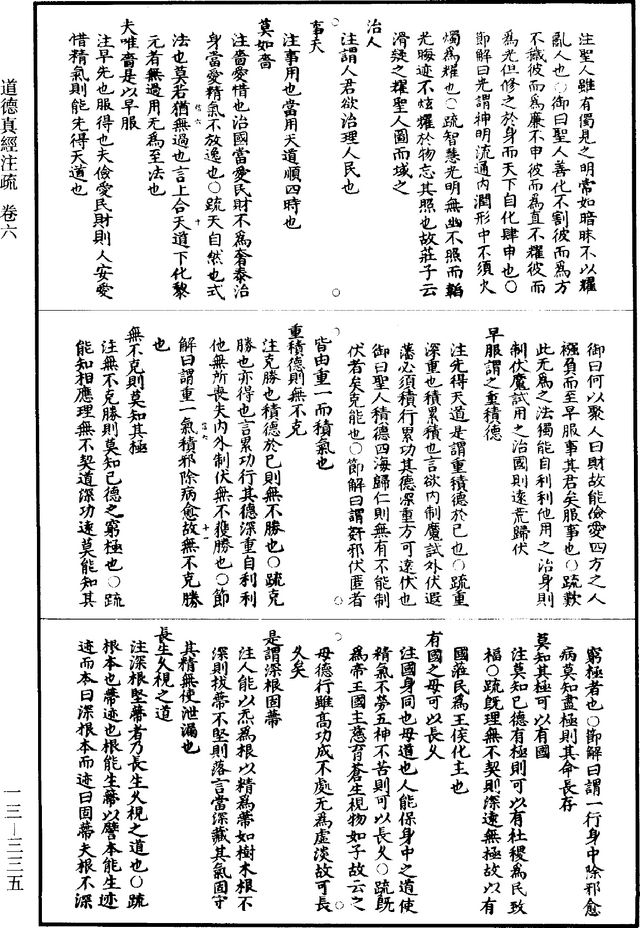 注聖人雖有獨見之明常如暗昧不以耀
亂人也○御曰聖人善化不割彼而爲方
不穢彼而爲廉不申彼而爲直不耀彼而
爲光但修之於身而天下自化肆申也○
節解曰光謂神明流通内潤形中不須火
燭爲耀也○疏智慧光明無幽不照而韜
光晦迹不炫耀於物忘其照也故莊子云
滑疑之耀聖人圖而域之
治人
注謂人君欲治理人民也
事天
注事用也當用天道順四時也
莫如嗇
注嗇愛惜也治國當愛民財不爲奢泰治
身當愛精氣不放逸也○疏天自然也式
法也莫若猶無過也言上合天道下化黎
元者無過用无爲至法也
夫唯嗇是以早服
注早先也服得也夫儉愛民財則人安愛
惜精氣則能先得天道也
御曰何以聚人曰財故能儉愛四方之人
襁負而至早服事其君矣服事也○疏歎
此无爲之法獨能自利利他用之治身則
制伏魔試用之治國則遠荒歸伏
早服謂之重積德
注先得天道是謂重積德於己也○疏重
深重也積累積也言欲内制魔試外伏遐
藩必須積行累功其德深重方可遠伏也
御曰聖人積德四海歸仁則無有不能制
伏者矣克能也○節解曰謂奸邪伏匿者
皆由重一而積氣也
重積德則無不克
注克勝也積德於己則無不勝也○疏克
勝也亦得也言累功行其德深重自利利
他無所喪失内外制伏無不獲勝也○節
解曰謂重一氣積邪除病愈故無不克勝
也
無不克則莫知其極
注無不克勝則莫知己德之窮極也○疏
能知相應理無不契道深功遠莫能知其
窮極者也○節解曰謂一行身中除邪愈
病莫知盡極則其命長存
莫知其極可以有國
注莫知己德有極則可以有社稷爲民致
福○疏既理無不契則深遠無極故以有
國莅民爲王侯化主也
有國之母可以長久
注國身同也母道也人能保身中之道使
精氣不勞五神不苦則可以長久○疏既
爲帝王國主慈育蒼生視物如子故云之
母德行雖高功成不處无爲虛淡故可長
久矣
是謂深根固蔕
注人能以炁爲根以精爲蔕如樹木根不
深則拔蔕不堅則落言當深藏其氣固守
其精無使泄漏也
長生久視之道
注深根堅蔕者乃長生久視之道也○疏
根本也蔕迹也根能生蔕以譬本能生迹
迹而本曰深根本而迹曰固蔕夫根不深
道德真經注疏 卷六
一三—三三五